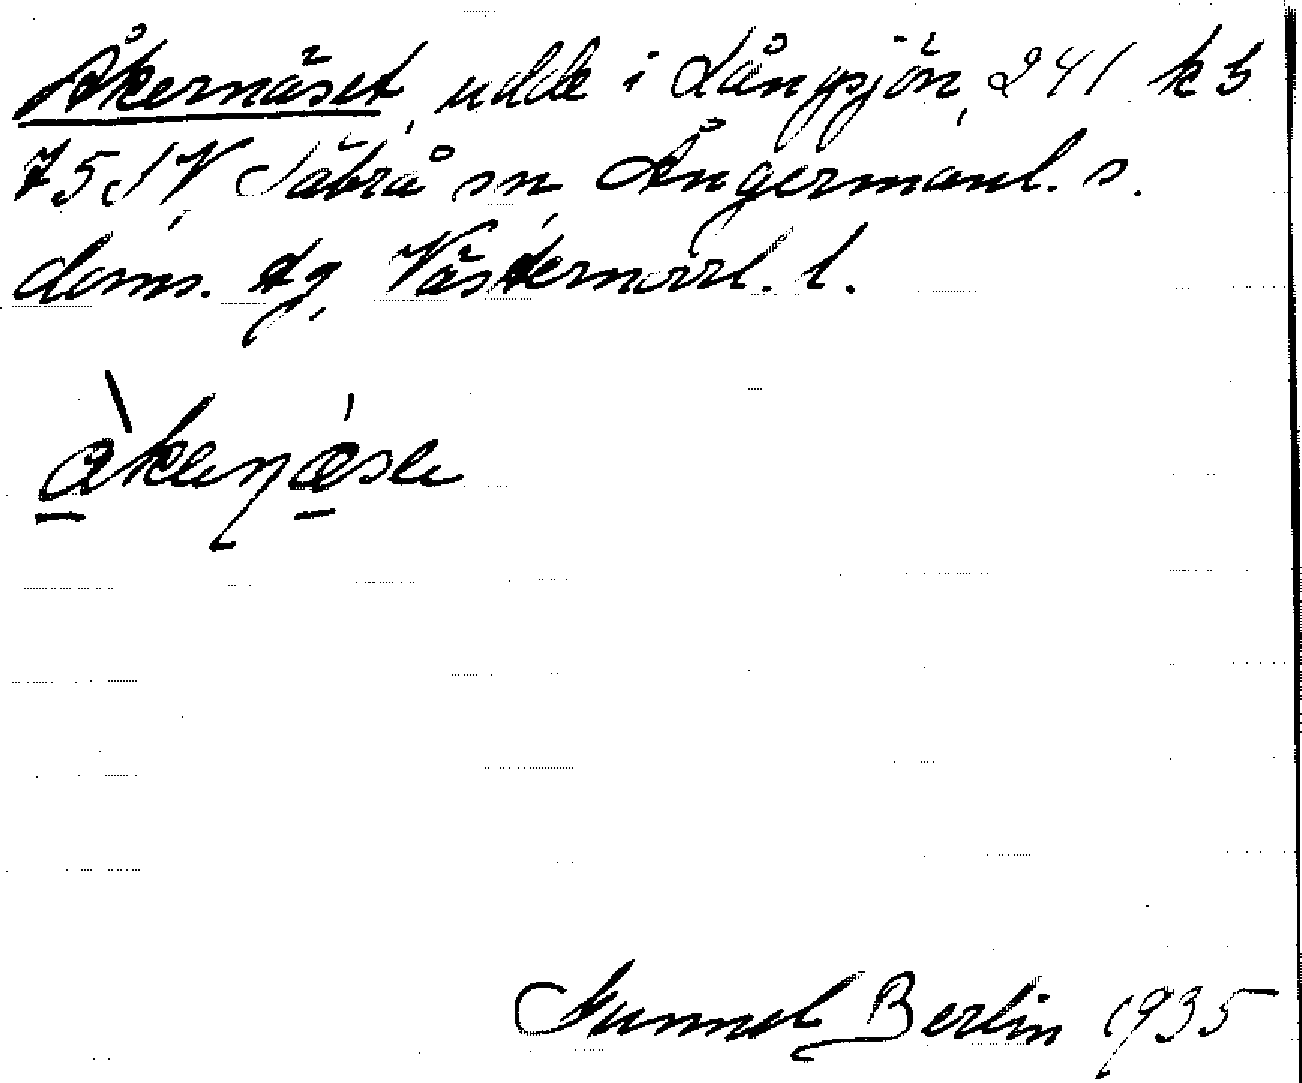 Åkernäset, udde i Långsjön, 241 kb
75 SV, Säbrå sn, Ångermanl. s.
doms. tg, Västernorrl. l.
àkeɳæse
Gunnel Berlin 1935